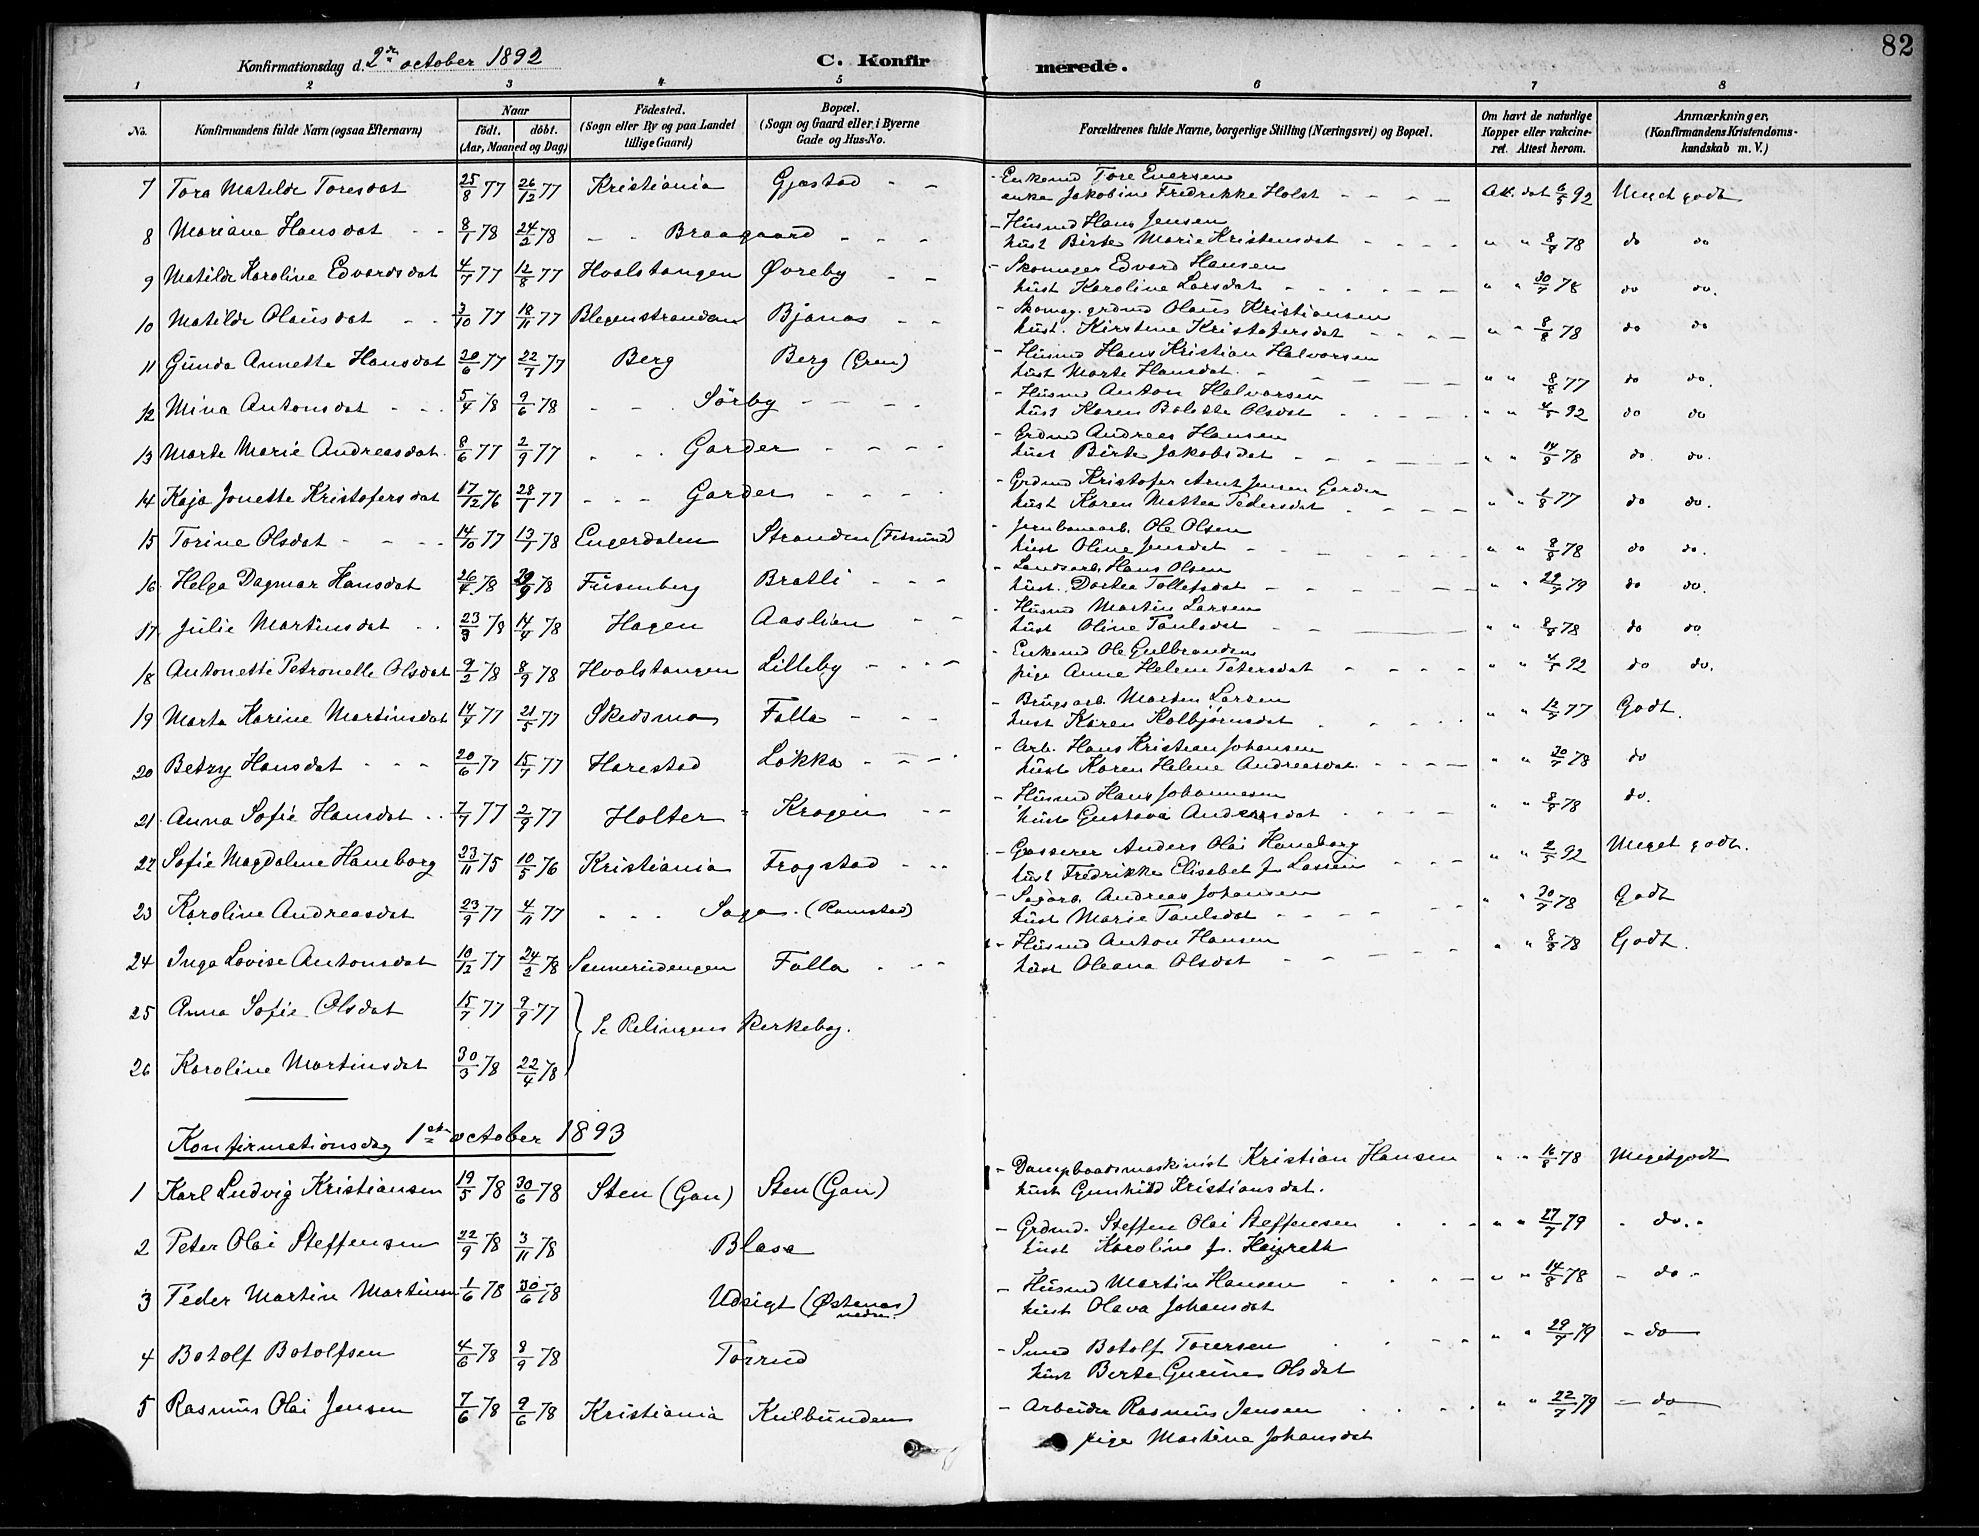 82
Konfirmationsdag d. 2den october 1892 C. Konfirmerede.
1 2 3 4 5 6 7 8
No. Konfirmandens fulde Navn (ogsaa Efternavn) Naar født. døbt. (Aar, Maaned og Dag) Fødested. (Sogn eller By og paa Landet tillige Gaard) Bopæl. (Sogn og Gaard eller i Byerne Gade og Hus-No. Forældrenes fulde Navne, borgerlige Stilling (Næringsvei) og Bopæl. Om havt de naturlige Kopper eller vakcineret. Attest herom. Anmærkninger, (Konfirmandens Kristendomskundskab m. V.)
7 Tora Matilde Toresdat 25/8 77 26/12 77 Kristiania Gjæstad - - - Enkemd Tore Evensen
enke Jakobine Fredrikke Holst - - - - Att. dat 6/5 92 Meget godt
8 Mariane Hansdat - - 8/1 78 24/2 78 - - Braagaard - - - - Husmd Hans Jensen
hust Birte Marie Kristensdat - - - - " " 8/8 78 do do
9 Matilde Karoline Edvardsdat 4/7 77 12/8 77 Hvalstangen Øvreby - - - Skomager Edvard Hansen
hust Karoline Larsdat - - - - " " 30/7 78 do do.
10 Matilde Olausdat - - 3/10 77 18/11 77 Blegenstranden Bjanæs - - - Skomag. grdmd Olaus Kristiansen
hust. Kirstine Kristofersdat - - - - " " 8/8 78 do do
11 Gunda Annette Hansdat 20/6 77 22/7 77 Berg Berg (Gren) - Husmd Hans Kristian Halvorsen
hust Marte Hansdat. - - - - " " 8/8 77 do do.
12 Mina Antonsdat - - 5/4 78 9/6 78 - - Sörby - - - - Husmd Anton Halvorsen
hust Karen Bolette Olsdat - - - - " " 4/5 92 do do
13 Marte Marie Andreasdat. 8/6 77 2/9 77 - - Garder - - - - Grdmd Andreas Hansen
hust Birte Jakobsdat - - - - " " 14/8 78 do do.
14 Kaja Jonette Kristofersdat 17/12 76 28/1 77 - - - Garder - - - - Grdmd Kristofer Arnt Jensen Garder
hust Karen Mathea Pedersdat - - - - " " 1/8 77 do do.
15 Torine Olsdat - - - 14/10 77 13/1 78 Engerdalen Stranden (Fetsund) - Jernbanearb. Ole Olsen
hust Oline Jensdat - - - - " " 8/8 78 do do.
16 Helga Dagmar Hansdat 26/4 78 29/9 78 Fusenberg Bratli - - - - Landsarb. Hans Olsen
hust. Dortea Tollefsdat - - - - " " 29/7 79 do do.
17 Julie Martinsdat - - 23/3 78 14/4 78 Hagen Aaslien - - - Husmd Martin Larsen
hust Oline Paulsdat - - - - " " 8/8 78 do do
18 Antonette Petronelle Olsdat 9/2 78 8/9 78 Hvalstangen Lilleby - - - - Enkemd Ole Gulbransen
pige Anne Helene Petersdat - - - - " " 4/5 92 do do.
19 Marta Karine Martinsdat 14/4 77 21/5 77 Skedsmo Falla - - - - Brugsarb. Martin Larsen
hust Karen Kolbjørnsdat - - - - " " 12/7 77 Godt.
20 Betzy Hansdat - - - 20/6 77 15/7 77 Harestad Løkka - - - - Arb. Hans Kristian Johansen
hust Karen Helene Andreasdat - - - - " " 30/7 78 do
21 Anna Sofie Hansdat - - 7/7 77 2/9 77 Holter Krogen - - - Husmd Hans Johannesen
hust Gustava Andersdat - - - - " " 8/8 78 do.
22 Sofie Magdalene Haneborg 23/11 75 10/5 76 Kristiania Frogstad - - - Grosserer Anders Olai Haneborg
hust Fredrikke Elisabet f. Lassen - - - " " 2/5 92 Meget godt.
23 Karoline Andreasdat 23/9 77 4/11 77 - - - Saga. (Ramstad) - Sagarb. Andreas Johansen
hust Marie Paulsdat - - - - " " 30/7 78 Godt
24 Inga Lovise Antonsdat 10/12 77 24/2 78 Sannerudengen Falla - - - - Husmd Anton Hansen
hust Oleana Olsdat - - - - " " 8/8 78 Godt.
25 Anna Sofie Olsdat 15/7 77 9/9 77 } Se Relingens kirkebog.
26 Karoline Martinsdat 30/3 78 22/4 78
Konfirmationsdag 1ste october 1893
1 Karl Ludvig Kristiansen 19/5 78 30/6 78 Sten (Gan) Sten (Gan) - Dampbaadsmaskinist Kristian Hansen
hust Gunhild Kristiansdat. " " 16/8 78 Meget godt
2 Peter Olai Steffensen 22/9 78 3/11 78 Blasa - Grdmd. Steffen Olai Steffensen
hust Karoline f. Heyreth " " 27/7 79 - do. -
3 Peder Martin Martinsen 1/6 78 30/6 78 Udsigt (Østenes) nedre. - Husmd Martin Hansen
hust Olava Johansdat " " 14/8 78 - do -
4 Botolf Botolfsen 4/6 78 8/9 78 Torrud - Smed Botolf Torersen
hust Berte Gurine Olsdat " " 29/7 79 - do -
5 Rasmus Olai Jensen 7/6 78 9/6 78 Kristiania Kulbunden - Arbeider Rasmus Jensen
pige Martine Johansdat " " 22/7 79 - do -